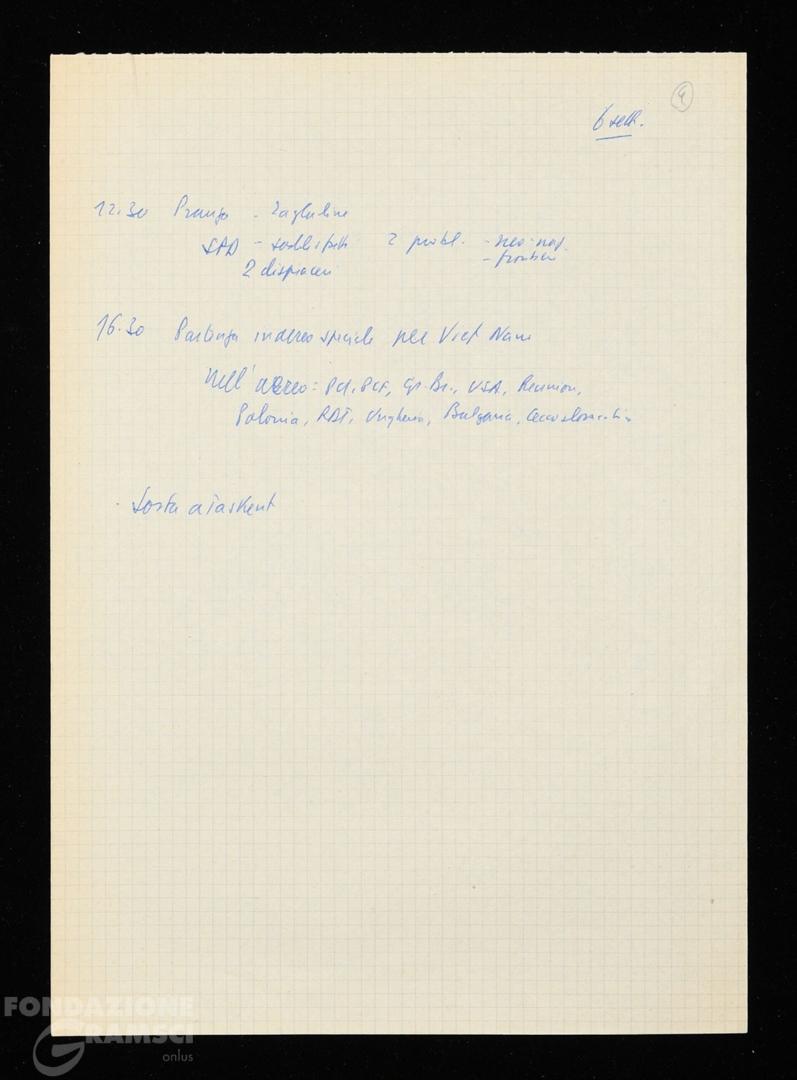 4
6 sett.
12.30 Pranzo - Zagladine
SPD - soddisfatti 2 probl. - neo-naz.
2 dispiaceri - frontiere
16.30 Partenza in aereo speciale per Viet Nam
Nell'aereo: PCI, PCF, Gr. Br., USA, Reunion,
Polonia, RDT, Ungheria, Bulgaria, Cecoslovacchia
Sosta a Taskent
FONDAZIONE
GRAMSCI
onlus